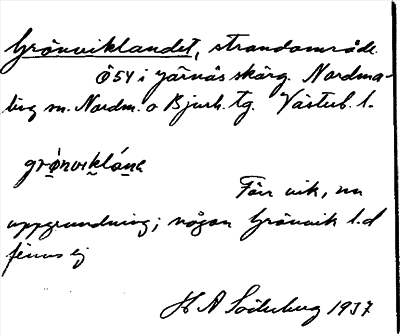 Grönviklandet, strandområde
Ö54 i Järnäs skärg. Nordma-
ling sn. Nordm. o Bjurh. tg. Västerb. l.
grǫ́nviklána
Förr vik, nu
uppgrundning; någon Grönvik l.d
finns ej
H A Söderberg 1937